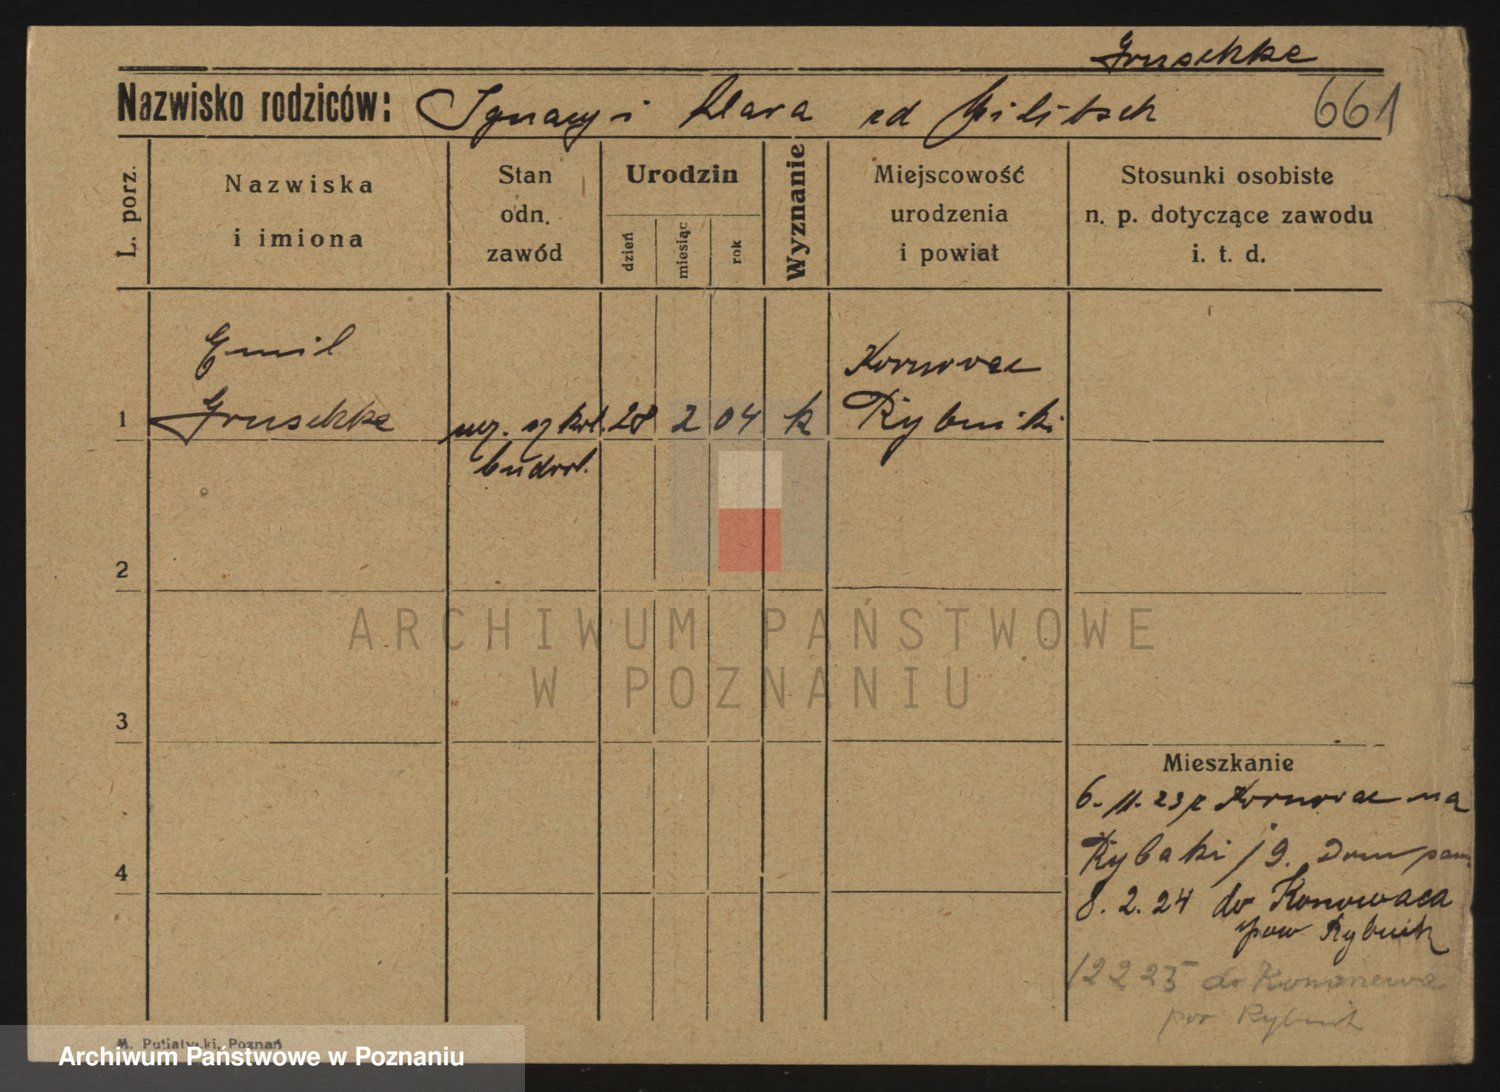 Gruschke
Nazwisko rodziców: Ignacy i Klara od
661
L. porz.
Nazwiska
i imiona
Stan
odn.
zawód
Urodzin
dzień
miesiąc
rok
Wyznanie
Miejscowość
urodzenia
i powiat
Stosunki osobiste
n. p. dotyczące zawodu
i. t. d.
1
Emil
Gruschke
ucz. szkoł.
budowl.
28
2
04
k
Kornowac
Rybnik
2
3
4
ARCHIWUM PAŃSTWOWE
W POZNANIU
Mieszkanie
6. 11. 23 z Kornowac na
Rybaki 19. Dom
8. 2. 24 do Konowaca
pow Rybnik
12 2 25 do
pow Rybnik
M. Putiatycki, Poznań
Archiwum Państwowe w Poznaniu